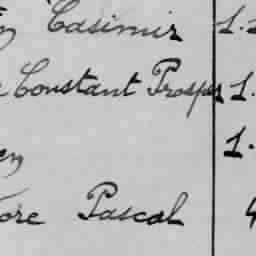 Casimir 1.
Constant Prosper 1.
en 1.
ore Pascal 4